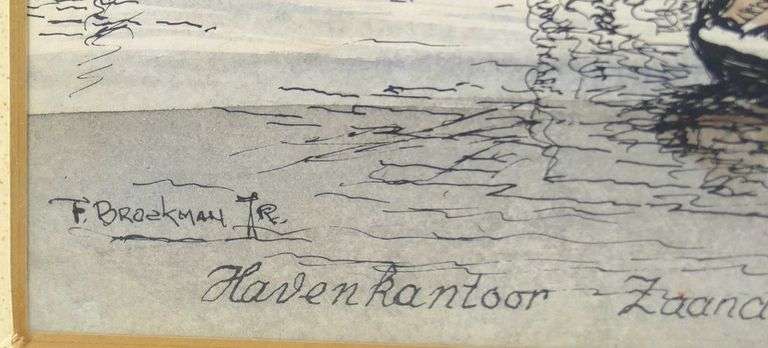 F. Broekman Jr.
Havenkantoor Zaand